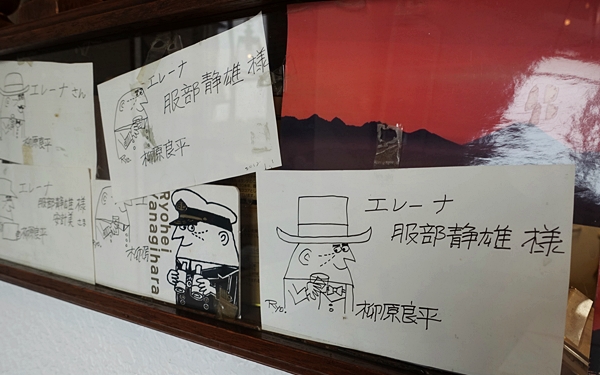 エレーナさん
柳原良平
エレーナ
服部静雄様
柳原良平
エレーナ
服部静雄様
柳原良平
柳原
Ryohei
Yanagihara
エレーナ
服部静雄様
Ryo.
柳原良平